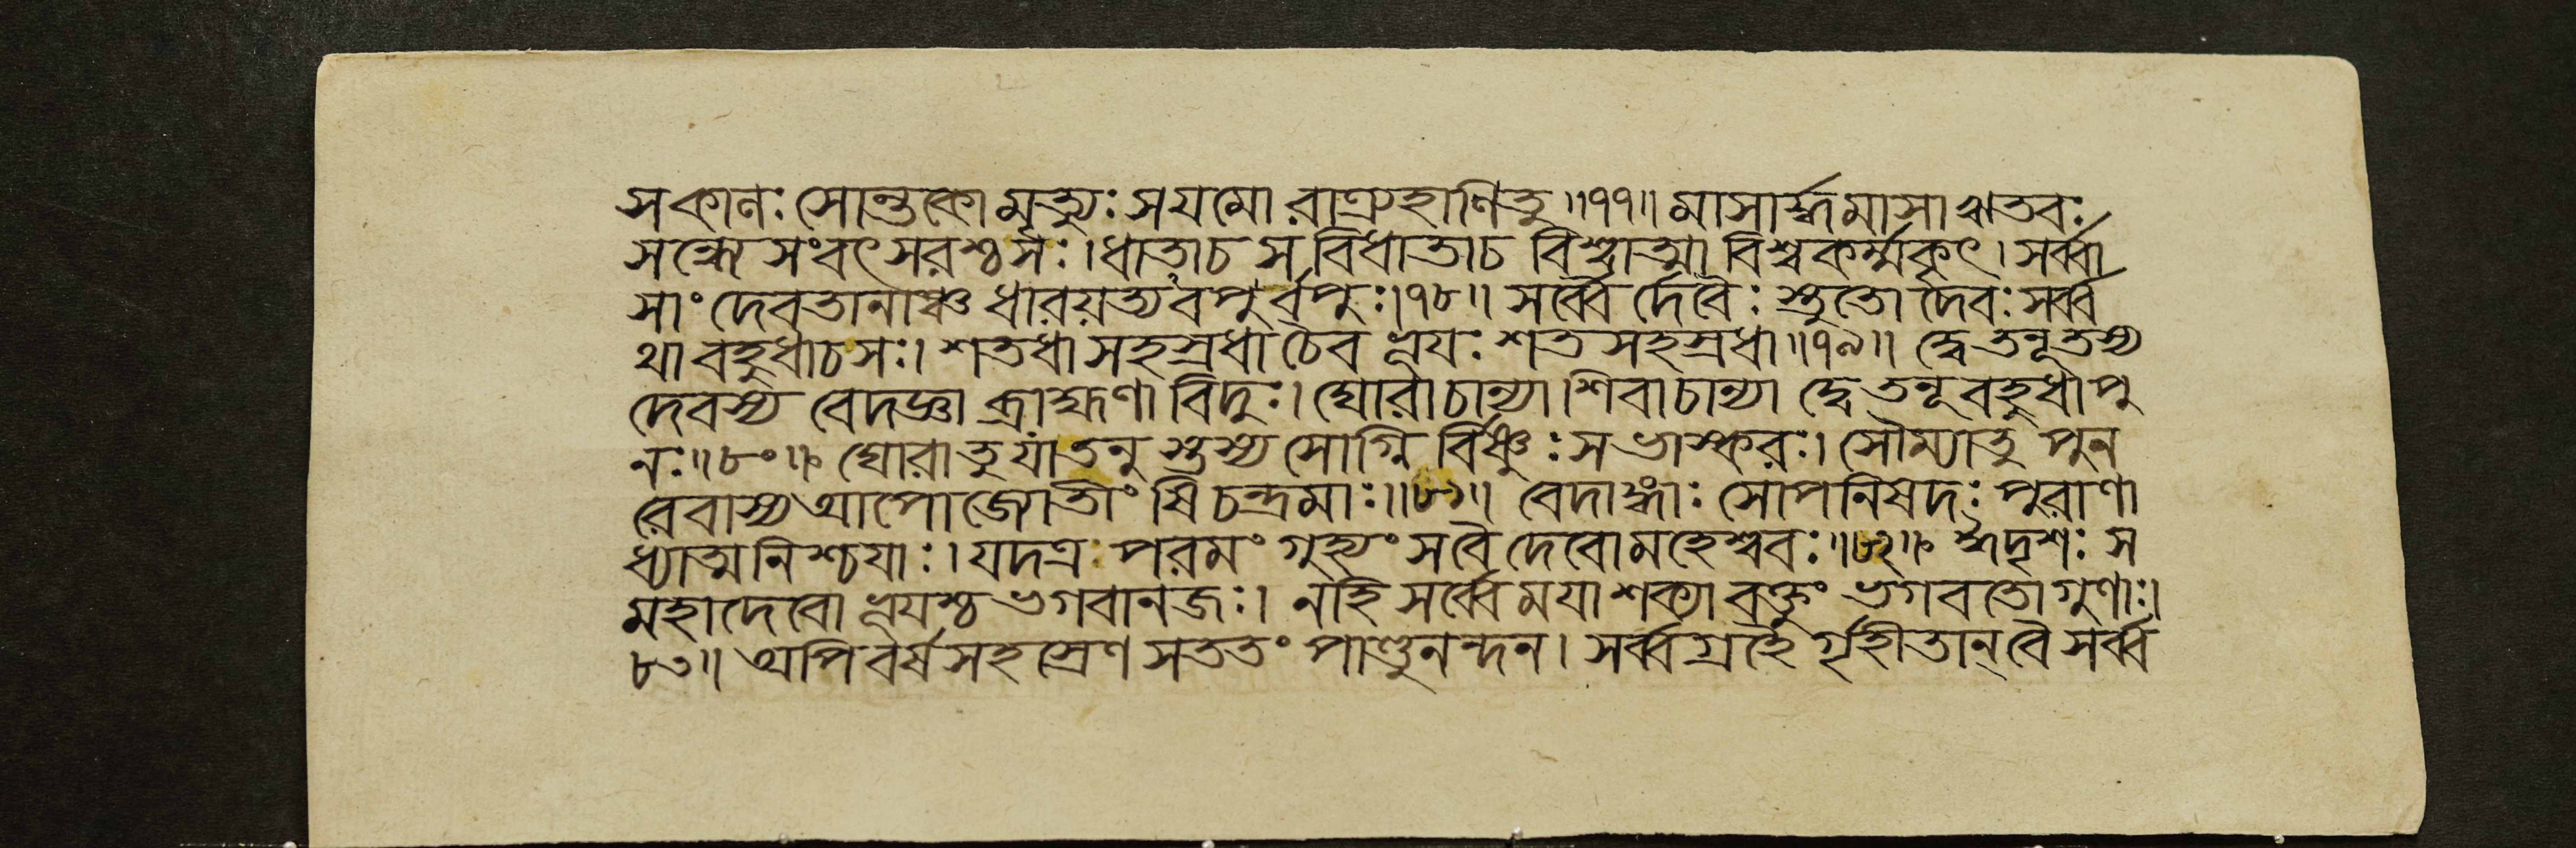 সকালঃ সোন্তকো মৃত্যুঃ স যমো রাত্র্যহাণি তু ॥৭৭॥ মাসার্দ্ধমাসা ঋতবঃ
সন্ধ্যে সংবৎসরশ্চ সঃ। ধাতা চ স বিধাতা চ বিশ্বাত্মা বিশ্বকর্ম্মকৃৎ। সর্ব্বা
সাং দেবতানাঞ্চ ধারয়ত্যবপুর্বপুঃ।৭৮॥ সর্ব্বৈর্দেবৈঃ স্তুতো দেবঃ সর্ব্ব
থা বহুধা চ সঃ। শতধা সহস্রধা চৈব ভূয়ঃ শতসহস্রধা ॥৭৯॥ দ্বে তনূ তস্য
দেবস্য বেদজ্ঞা ব্রাহ্মণা বিদুঃ। ঘোরা চান্যা শিবা চান্যা দ্বে তনূ বহুধা পু
নঃ॥৮০॥ ঘোরা তু যা তনু স্তস্য সোগ্নি র্বিষ্ণুঃ স ভাস্করঃ। সৌম্যা তু পুন
রেবাস্য আপো জোতীংষি চন্দ্রমাঃ॥৮১॥ বেদাঙ্গাঃ সোপনিষদঃ পুরাণা
ধ্যাত্মনিশ্চয়াঃ। যদত্র পরমং গুহ্যং স বৈ দেবো মহেশ্বরঃ॥৮২॥ ঈদৃশঃ স
মহাদেবো ভূয়শ্চ ভগবানজঃ। নহি সর্ব্বে ময়া শক্যা বক্তুং ভগবতো গুণাঃ।
৮৩॥ অপি বর্ষসহস্রেণ সততং পাণ্ডুনন্দন। সর্ব্বগ্রহৈর্গৃহীতান্ বৈ সর্ব্ব